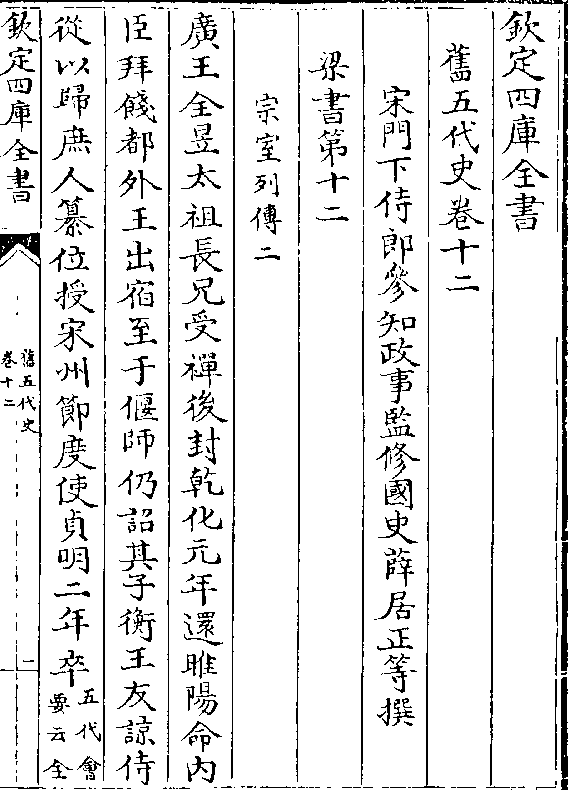 欽定四庫全書
舊五代史卷十二
宋門下侍郎參知政事監修國史薛居正等撰
梁書第十二
宗室列傳二
廣王全昱太祖長兄受禪後封乾化元年還睢陽命内
臣拜餞都外王出宿至于偃師仍詔其子衡王友諒侍
從以歸庶人簒位授宋州節度使貞明二年卒五代會
要云全
欽定四庫全書
舊五代史
卷十二
一